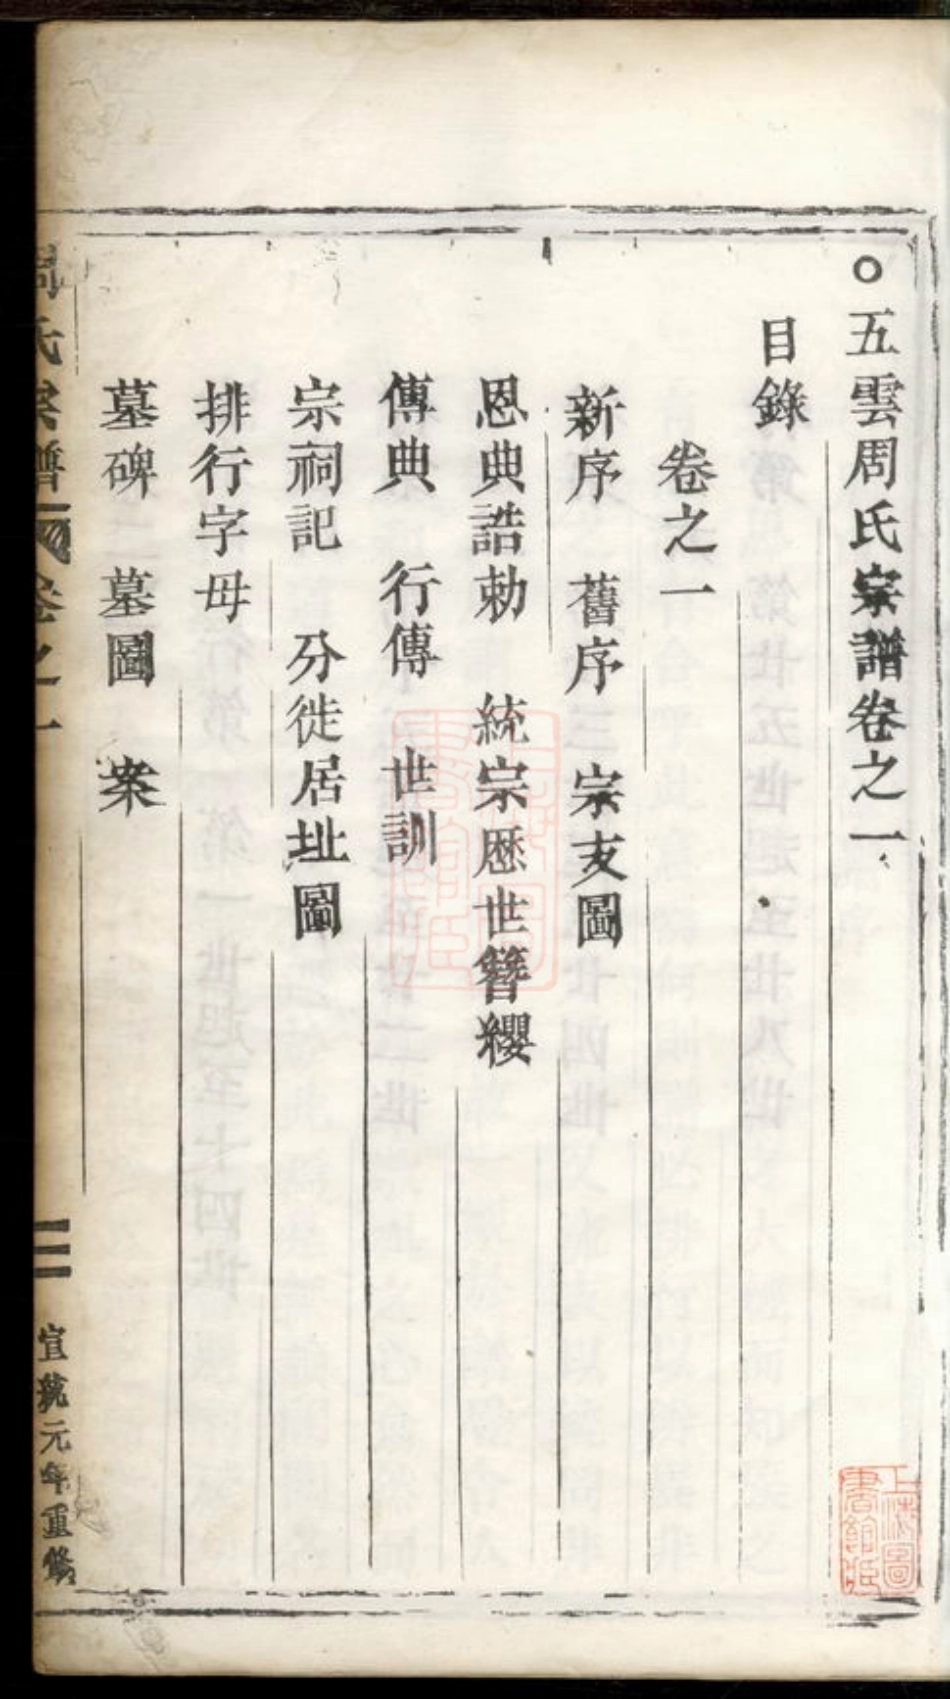 ○五雲周氏宗譜卷之一
目錄
卷之一
新序 舊序 宗支圖
恩典誥勅 統宗歷世簪纓
傳典 行傳 世訓
宗祠記 分徙居址圖
排行字母
墓碑 墓圖 案
周氏宗譜 卷之一 二 宣統元年重修
上海圖書館藏